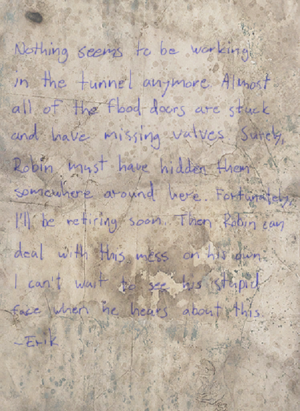 Nothing seems to be working
in the tunnel anymore Almost
all of the flood-doors are stuck
and have missing valves Surely,
Robin must have hidden them
somewhere around here. Fortunately,
I'll be retiring soon. Then Robin can
deal with this mess on his own
I can't wait to see his stupid
face when he hears about this.
~Erik